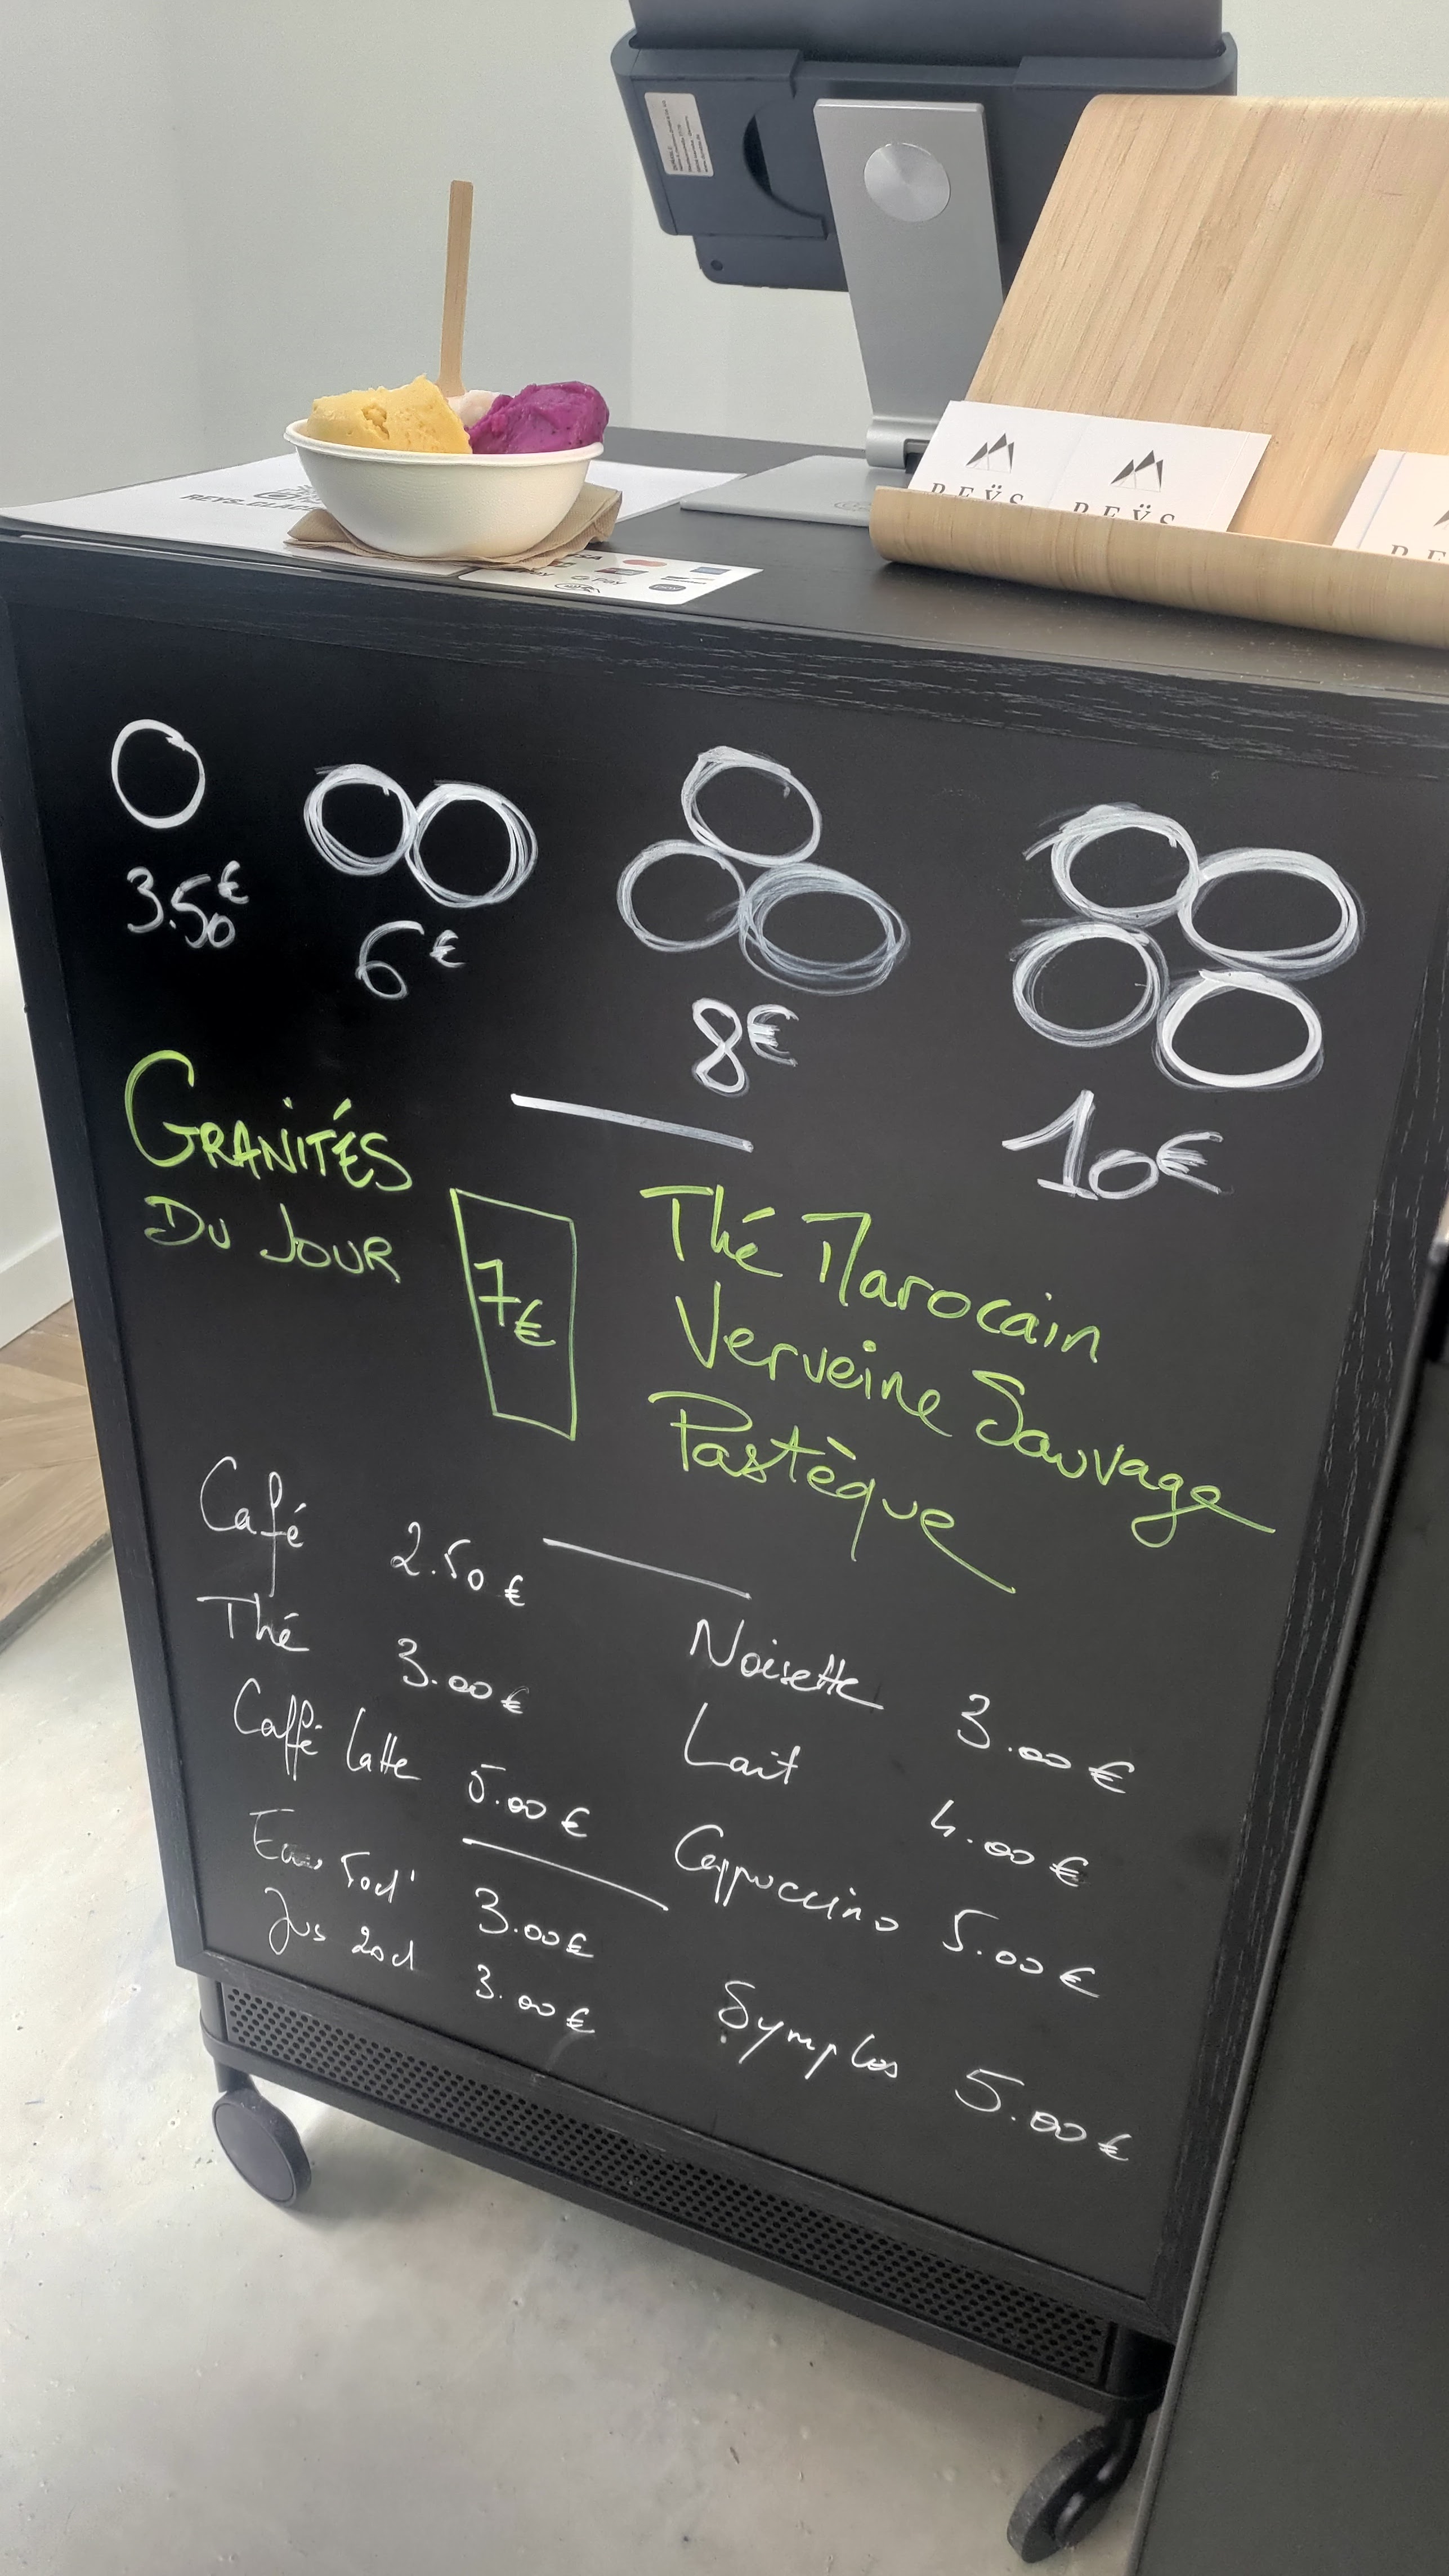 REŸS
REŸS
REYS.GLAC
Pay
G Pay
3.50€
6€
8€
10€
GRANITÉS
DU JOUR
7€
Thé Marocain
Verveine Sauvage
Pastèque
Café 2.50€
Thé 3.00€
Caffé latte 5.00€
Noisette 3.00€
Lait 4.00€
Cappuccino 5.00€
Eau 50cl 3.00€
Jus 20cl 3.00€
Symples 5.00€